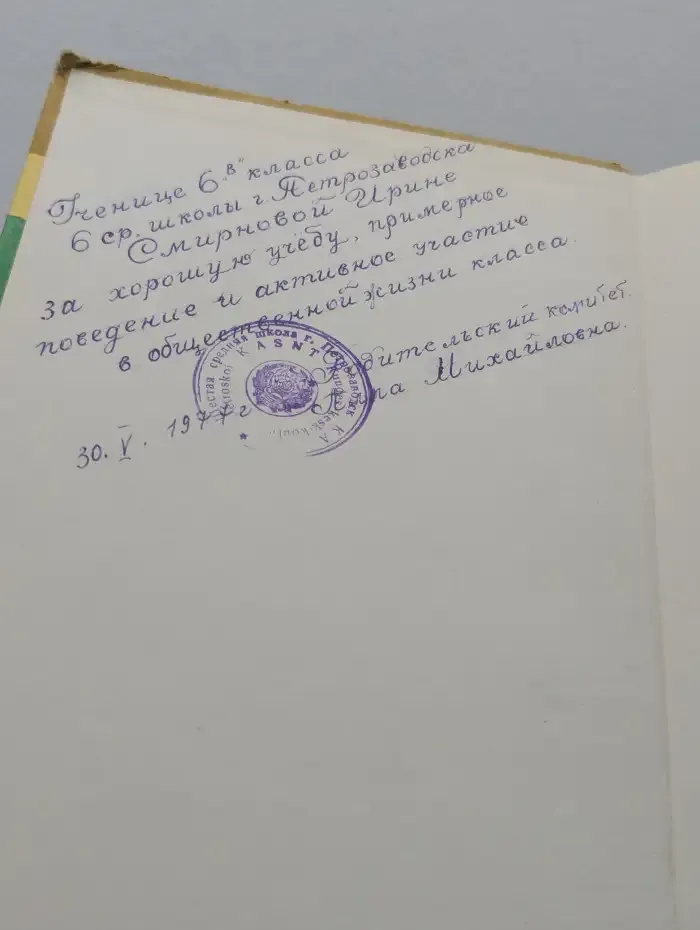 Ученице 6 „в" класса
6 ср. школы г. Петрозаводска
Смирновой Ирине
за хорошую учёбу, примерное
поведение и активное участие
в общественной жизни класса.
Родительский комитет.
Михайловна.
30. V. 1977 г
средняя школа г. Петрозаводск
KASNT